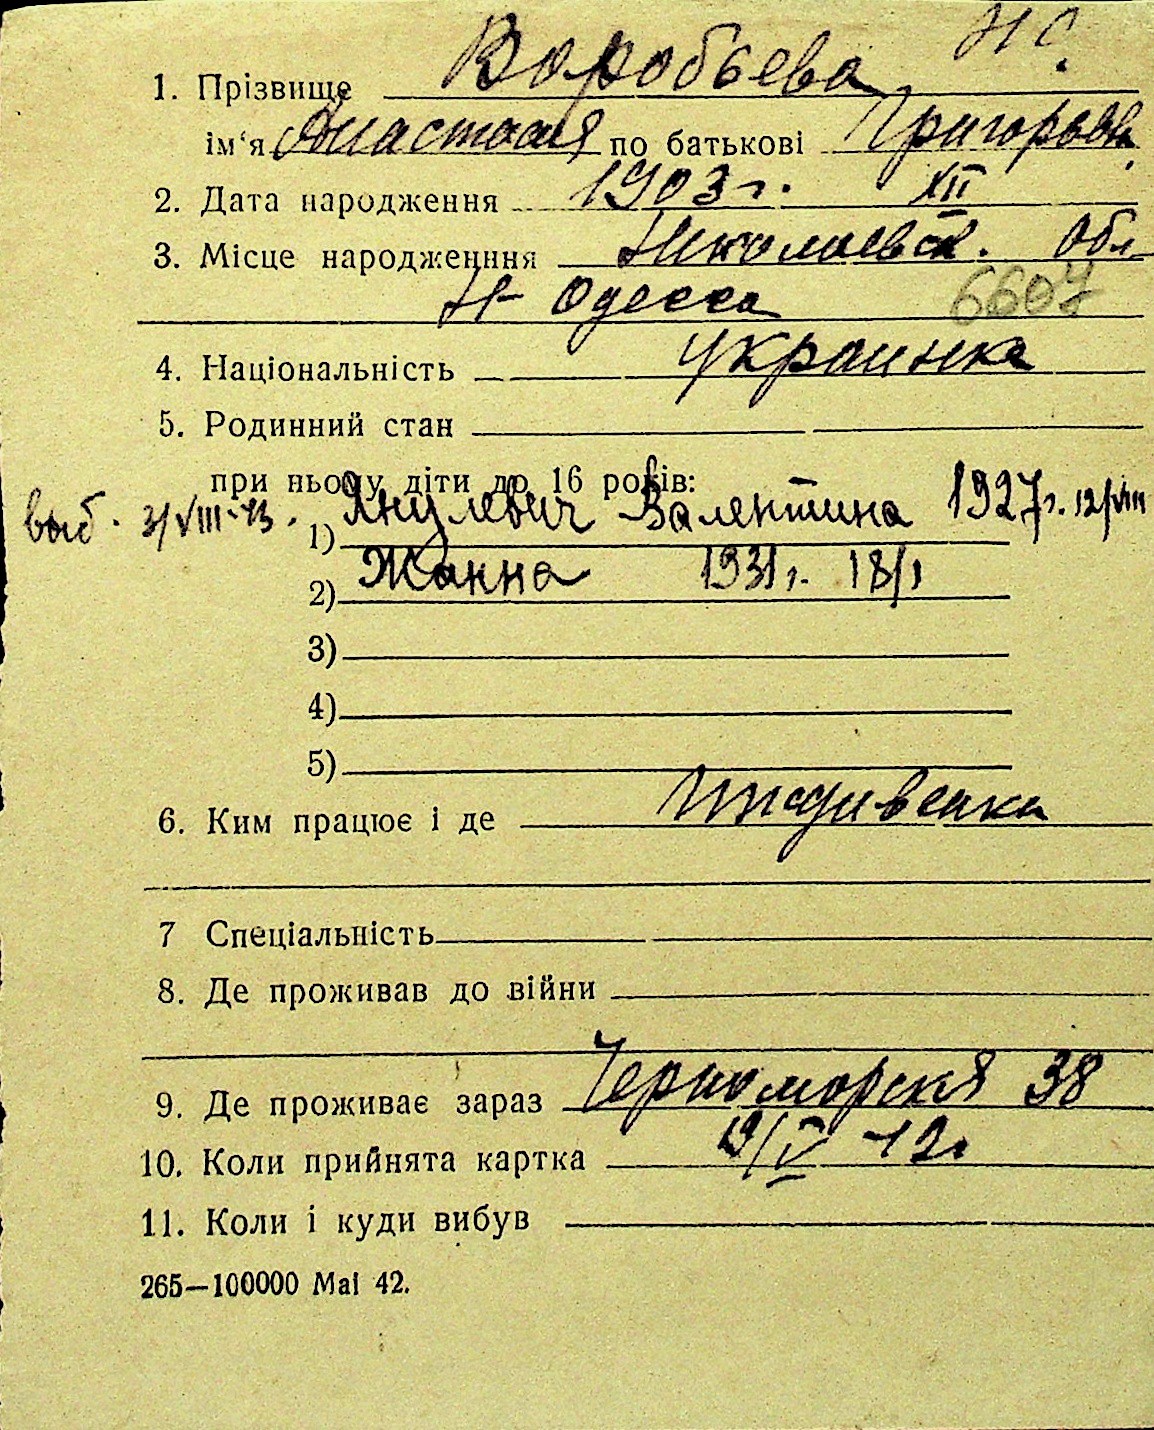 Н С.
1. Прізвище Воробьева
ім'я Анастасия по батькові Григорьев.
2. Дата народження 1903 г. XII
3. Місце народженння Николаевск. Обл
Н-Одесса 6607
4. Національність Украинка
5. Родинний стан
при ньому діти до 16 років:
выб. 3/VIII-43. 1) Янулевич Валентина 1927 г. 12/VIII
2) Жанна 1931 г. 18/I
3)
4)
5)
6. Ким працює і де Иждивенка
7 Спеціальність
8. Де проживав до війни
9. Де проживає зараз Черноморская 38
10. Коли прийнята картка 19/V 42
11. Коли і куди вибув
265—100000 Маі 42.